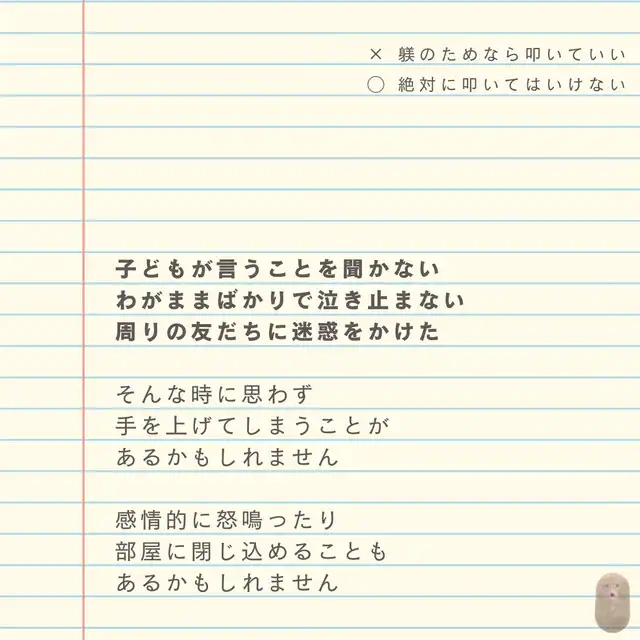 × 躾のためなら叩いていい
○ 絶対に叩いてはいけない
子どもが言うことを聞かない
わがままばかりで泣き止まない
周りの友だちに迷惑をかけた
そんな時に思わず
手を上げてしまうことが
あるかもしれません
感情的に怒鳴ったり
部屋に閉じ込めることも
あるかもしれません